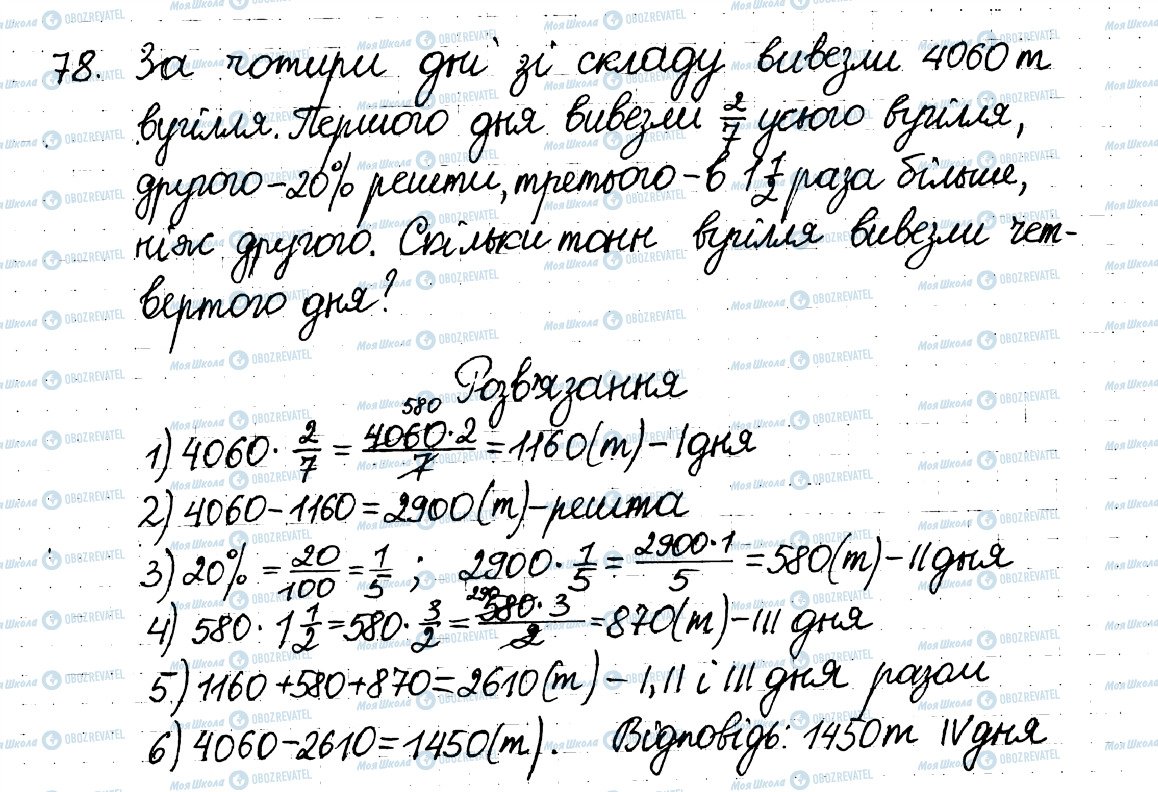 78. За чотири дні зі складу вивезли 4060 т
вугілля. Першого дня вивезли 2/7 усього вугілля,
другого – 20% решти, третього – в 1 1/2 раза більше,
ніж другого. Скільки тонн вугілля вивезли чет-
вертого дня?
Розв'язання
1) 4060 · 2/7 = 4060·2/7 = 1160 (т) – I дня
580
2) 4060 – 1160 = 2900 (т) – решта
3) 20% = 20/100 = 1/5 ; 2900 · 1/5 = 2900·1/5 = 580 (т) – II дня
4) 580 · 1 1/2 = 580 · 3/2 = 580·3/2 = 870 (т) – III дня
290
5) 1160 + 580 + 870 = 2610 (т) – I, II і III дня разом
6) 4060 – 2610 = 1450 (т). Відповідь: 1450 т IV дня
МояШкола OBOZREVATEL